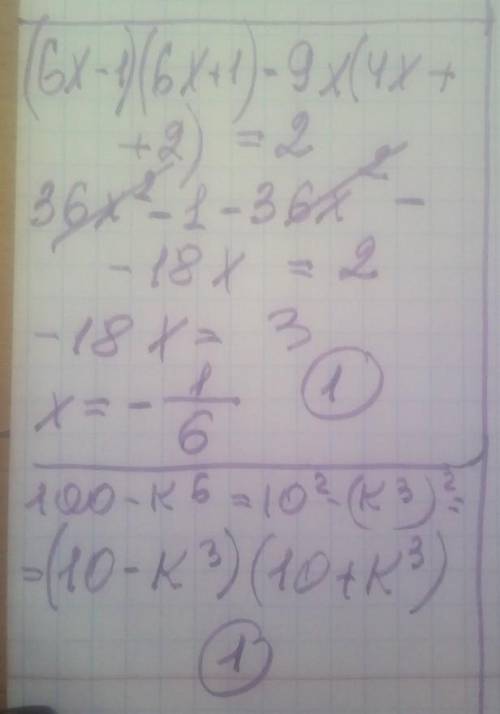 (6x-1)(6x+1)-9x(4x+
+2) = 2
36x²-1-36x²-
-18x = 2
-18x = 3
x = -1/6 ①
100-к⁶=10²-(к³)²=
=(10-к³)(10+к³)
①